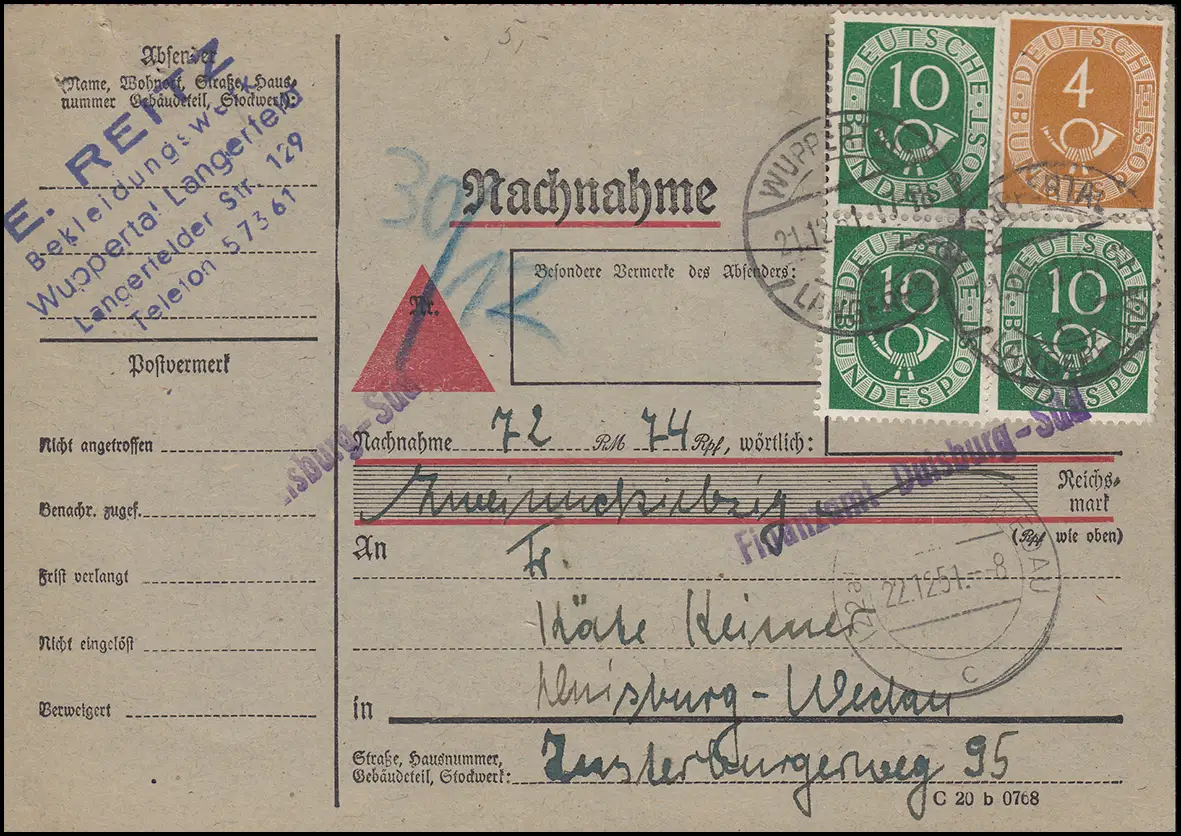 5,-
Absender
(Name, Wohnort, Straße, Haus-
nummer Gebäudeteil, Stockwerk):
E. REITZ
Bekleidungswerk
Wuppertal Langerfeld
Langerfelder Str. 129
Telefon 57361
Postvermerk
Nicht angetroffen
Benachr. zugef.
Frist verlangt
Nicht eingelöst
Verweigert
10
DEUTSCHE BUNDESPOST
4
DEUTSCHE BUNDESPOST
10
DEUTSCHE BUNDESPOST
10
DEUTSCHE BUNDESPOST
WUPPERTAL
21.12.51
30/12
Nachnahme
Nr.
Besondere Vermerke des Absenders:
Nachnahme 72 RM 74 Rpf, wörtlich:
Zweiundsiebzig
Reichs-
mark
(Rpf wie oben)
Finanzamt Duisburg-Süd
An
Fr.
Käte Keimer
in Duisburg-Wedau
Straße, Hausnummer,
Gebäudeteil, Stockwerk:
Insterburgerweg 95
22.12.51.-8
c
C 20 b 0768